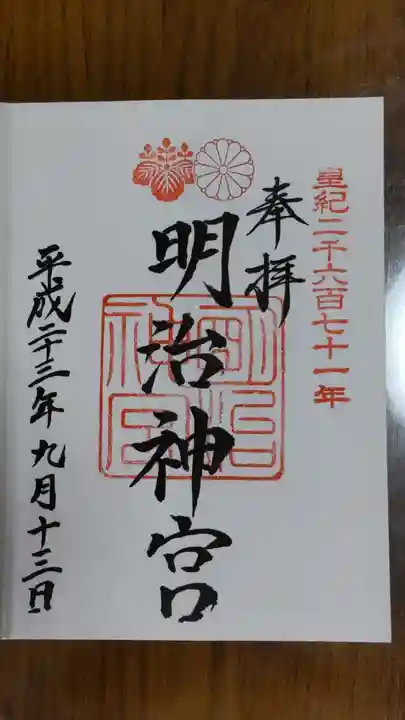 皇紀二千六百七十一年
奉拝
明治神宮
明治神宮
平成二十三年九月十三日